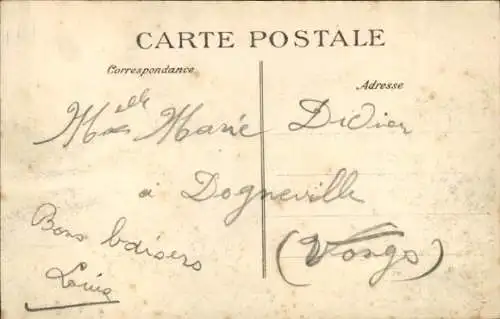 CARTE POSTALE
Correspondance
Adresse
Melle Marie Didier
à Dogneville
(Vosges)
Bons baisers